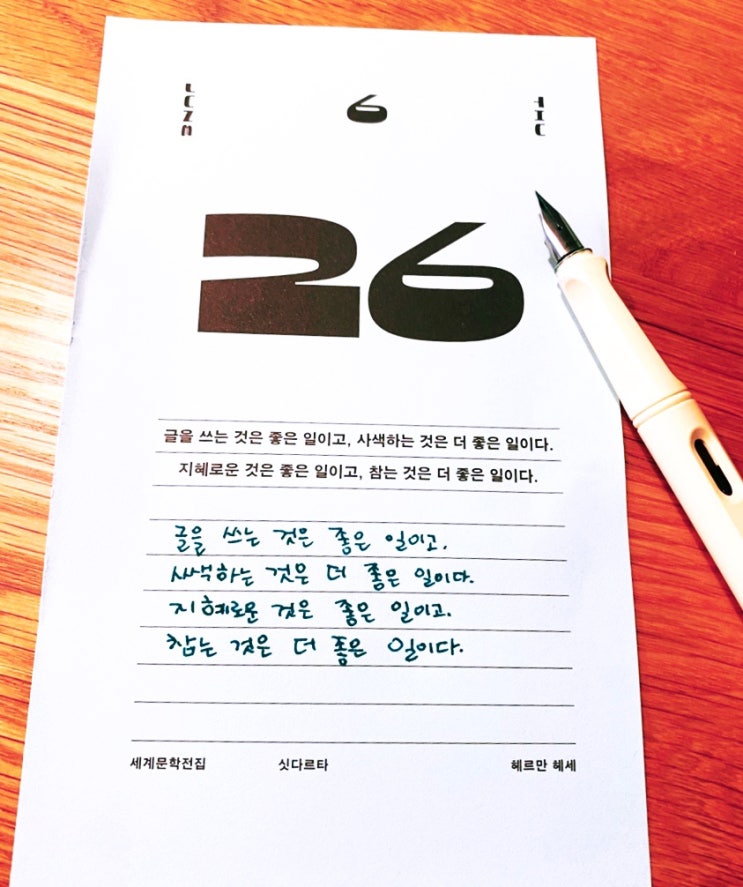 6
26
글을 쓰는 것은 좋은 일이고, 사색하는 것은 더 좋은 일이다.
지혜로운 것은 좋은 일이고, 참는 것은 더 좋은 일이다.
글을 쓰는 것은 좋은 일이고,
사색하는 것은 더 좋은 일이다.
지혜로운 것은 좋은 일이고.
참는 것은 더 좋은 일이다.
세계문학전집 싯다르타 헤르만 헤세